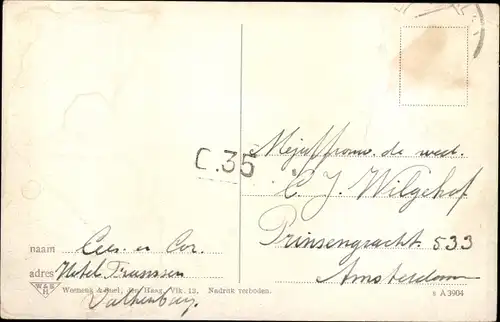 C.35
Mejuffrouw. de wed.
C J. Wilgehof
Prinsengracht 533
Amsterdam
naam Cees. en Cor.
adres Hotel Franssen
Valkenburg.
W&S
H
Weenenk & Snel, den Haag, Vlk. 13. Nadruk verboden.
s A 3904